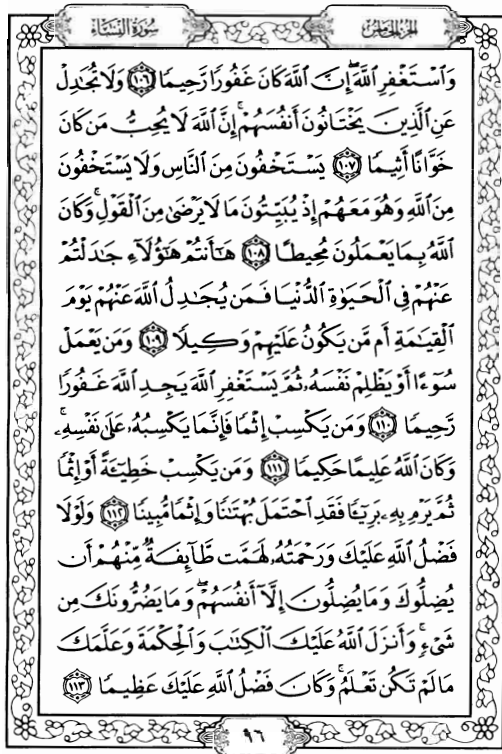 الجزء الخامس
سورة النساء
وَٱسْتَغْفِرِ ٱللَّهَ ۖ إِنَّ ٱللَّهَ كَانَ غَفُورًا رَّحِيمًا ﴿١٠٦﴾ وَلَا تُجَٰدِلْ
عَنِ ٱلَّذِينَ يَخْتَانُونَ أَنفُسَهُمْ ۚ إِنَّ ٱللَّهَ لَا يُحِبُّ مَن كَانَ
خَوَّانًا أَثِيمًا ﴿١٠٧﴾ يَسْتَخْفُونَ مِنَ ٱلنَّاسِ وَلَا يَسْتَخْفُونَ
مِنَ ٱللَّهِ وَهُوَ مَعَهُمْ إِذْ يُبَيِّتُونَ مَا لَا يَرْضَىٰ مِنَ ٱلْقَوْلِ ۚ وَكَانَ
ٱللَّهُ بِمَا يَعْمَلُونَ مُحِيطًا ﴿١٠٨﴾ هَٰٓأَنتُمْ هَٰٓؤُلَآءِ جَٰدَلْتُمْ
عَنْهُمْ فِى ٱلْحَيَوٰةِ ٱلدُّنْيَا فَمَن يُجَٰدِلُ ٱللَّهَ عَنْهُمْ يَوْمَ
ٱلْقِيَٰمَةِ أَم مَّن يَكُونُ عَلَيْهِمْ وَكِيلًا ﴿١٠٩﴾ وَمَن يَعْمَلْ
سُوٓءًا أَوْ يَظْلِمْ نَفْسَهُۥ ثُمَّ يَسْتَغْفِرِ ٱللَّهَ يَجِدِ ٱللَّهَ غَفُورًا
رَّحِيمًا ﴿١١٠﴾ وَمَن يَكْسِبْ إِثْمًا فَإِنَّمَا يَكْسِبُهُۥ عَلَىٰ نَفْسِهِۦ ۚ
وَكَانَ ٱللَّهُ عَلِيمًا حَكِيمًا ﴿١١١﴾ وَمَن يَكْسِبْ خَطِيٓـَٔةً أَوْ إِثْمًا
ثُمَّ يَرْمِ بِهِۦ بَرِيٓـًٔا فَقَدِ ٱحْتَمَلَ بُهْتَٰنًا وَإِثْمًا مُّبِينًا ﴿١١٢﴾ وَلَوْلَا
فَضْلُ ٱللَّهِ عَلَيْكَ وَرَحْمَتُهُۥ لَهَمَّت طَّآئِفَةٌ مِّنْهُمْ أَن
يُضِلُّوكَ وَمَا يُضِلُّونَ إِلَّآ أَنفُسَهُمْ ۖ وَمَا يَضُرُّونَكَ مِن
شَىْءٍ ۚ وَأَنزَلَ ٱللَّهُ عَلَيْكَ ٱلْكِتَٰبَ وَٱلْحِكْمَةَ وَعَلَّمَكَ
مَا لَمْ تَكُن تَعْلَمُ ۚ وَكَانَ فَضْلُ ٱللَّهِ عَلَيْكَ عَظِيمًا ﴿١١٣﴾
٩٦